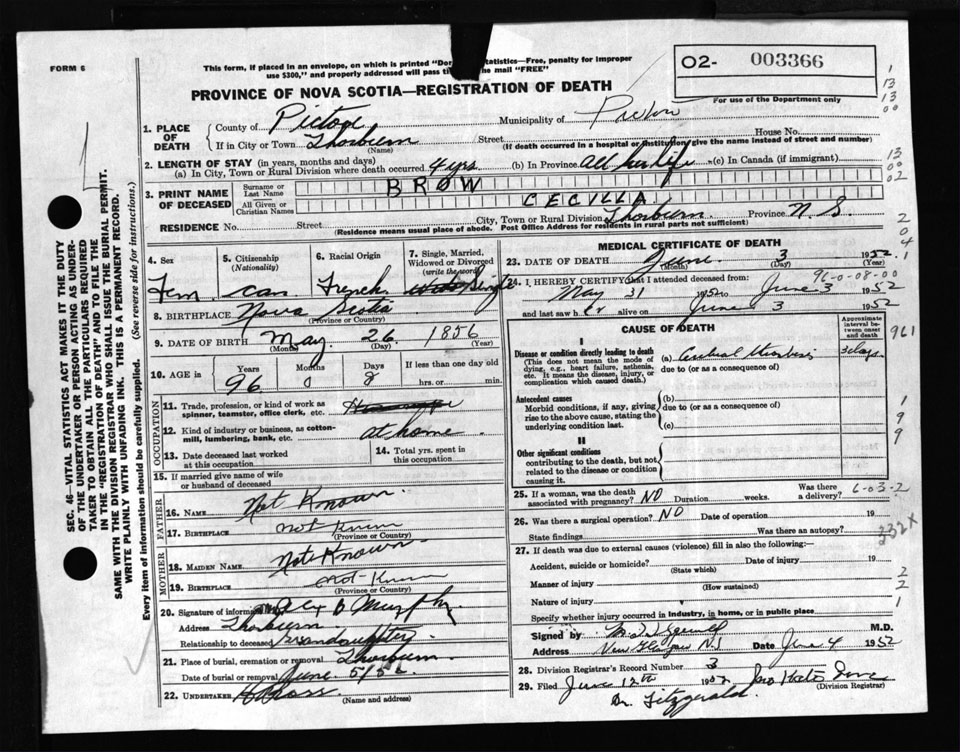 FORM 6
This form, if placed in an envelope, on which is printed "Dor Statistics—Free, penalty for improper
use $300," and properly addressed will pass the mail "FREE"
02- 003366
For use of the Department only
PROVINCE OF NOVA SCOTIA—REGISTRATION OF DEATH
1. PLACE OF DEATH County of Pictou Municipality of Pictou
If in City or Town Thorburn (Name) Street House No.
(If death occurred in a hospital or institution, give the name instead of street and number)
2. LENGTH OF STAY (in years, months and days)
(a) In City, Town or Rural Division where death occurred 4 yrs (b) In Province all her life (c) In Canada (if immigrant)
3. PRINT NAME OF DECEASED Surname or Last Name BROW
All Given or Christian Names CECILLA
RESIDENCE No. Street City, Town or Rural Division Thorburn Province N.S.
(Residence means usual place of abode. Post Office Address for residents in rural parts not sufficient)
4. Sex 5. Citizenship (Nationality) 6. Racial Origin 7. Single, Married, Widowed or Divorced (write the word)
Fem. Can. French Single
8. BIRTHPLACE Nova Scotia
(Province or Country)
9. DATE OF BIRTH May 26 1856
(Month) (Day) (Year)
10. AGE in Years Months Days If less than one day old
96 0 8 hrs. or min.
OCCUPATION
11. Trade, profession, or kind of work as spinner, teamster, office clerk, etc.
12. Kind of industry or business, as cotton-mill, lumbering, bank, etc. at home
13. Date deceased last worked at this occupation 14. Total yrs. spent in this occupation
15. If married give name of wife or husband of deceased
FATHER
16. NAME Not Known
17. BIRTHPLACE Not Known
(Province or Country)
MOTHER
18. MAIDEN NAME Not Known
19. BIRTHPLACE Not Known
(Province or Country)
20. Signature of informant Alex D Murphy
Address Thorburn
Relationship to deceased Grandaughter
21. Place of burial, cremation or removal Thorburn
Date of burial or removal June 5/52
22. UNDERTAKER
(Name and address)
MEDICAL CERTIFICATE OF DEATH
23. DATE OF DEATH June 3 1952
(Month) (Day) (Year)
96-0-08-00
24. I HEREBY CERTIFY that I attended deceased from:
May 31 1952 to June 3 1952
and last saw her alive on June 3 1952
CAUSE OF DEATH
Approximate interval between onset and death
I
Disease or condition directly leading to death (a) Cerebral Thrombosis 3 days
(This does not mean the mode of dying, e.g., heart failure, asthenia, etc. It means the disease, injury, or complication which caused death.)
due to (or as a consequence of)
Antecedent causes (b)
Morbid conditions, if any, giving rise to the above cause, stating the underlying condition last.
due to (or as a consequence of)
(c)
II
Other significant conditions
contributing to the death, but not related to the disease or condition causing it.
25. If a woman, was the death associated with pregnancy? NO Duration weeks. Was there a delivery?
6-03-2
26. Was there a surgical operation? NO Date of operation 19
State findings Was there an autopsy?
332X
27. If death was due to external causes (violence) fill in also the following:
Accident, suicide or homicide? Date of injury 19
(State which)
Manner of injury
(How sustained)
Nature of injury
Specify whether injury occurred in industry, in home, or in public place
Signed by M.D.
Address New Glasgow N.S. Date June 4 1952
28. Division Registrar's Record Number 3
29. Filed June 12th 1952
(Division Registrar)
Dr. Fitzgerald.
SEC. 46—VITAL STATISTICS ACT MAKES IT THE DUTY
OF THE UNDERTAKER OR PERSON ACTING AS UNDER-
TAKER TO OBTAIN ALL THE PARTICULARS REQUIRED
IN THE "REGISTRATION OF DEATH" AND TO FILE THE
SAME WITH THE DIVISION REGISTRAR WHO SHALL ISSUE THE BURIAL PERMIT.
WRITE PLAINLY WITH UNFADING INK. THIS IS A PERMANENT RECORD.
Every item of information should be carefully supplied. (See reverse side for instructions.)
1
13
13
00
13
00
02
2
0
4
1
961
1
9
9
2
2
1